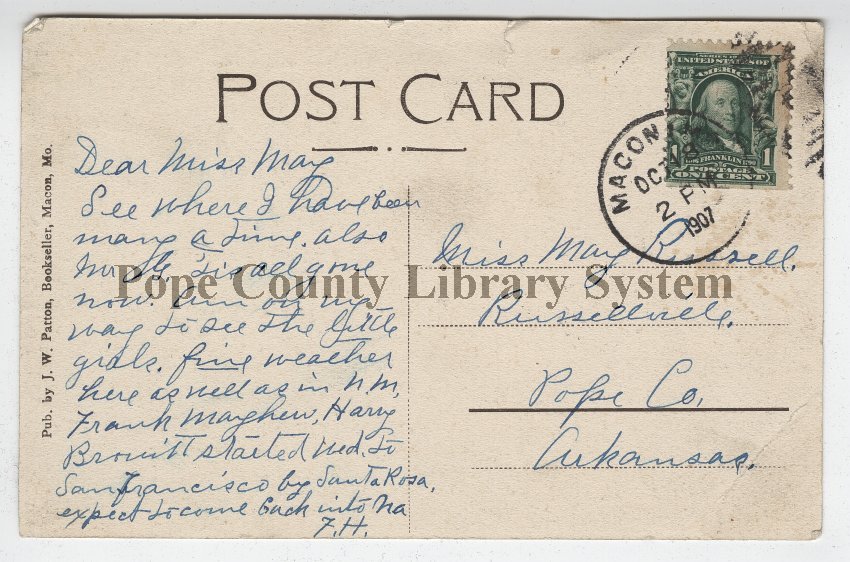 POST CARD
SERIES 1902
UNITED STATES OF
AMERICA
1 FRANKLIN 1
POSTAGE
ONE CENT
MACON
OCT
2 PM
1907
Pub. by J. W. Patton, Bookseller, Macon, Mo.
Dear Miss May
See where I have been
many a time. also
is all gone
now. Am on my
way to see the little
girls. fine weather
here as well as in N.M.
Frank Mayhew, Harry
started Wed. to
San Francisco by Santa Rosa,
expect to come back into
F.H.
Miss May Russell.
Russellville,
Pope Co,
Arkansas,
Pope County Library System